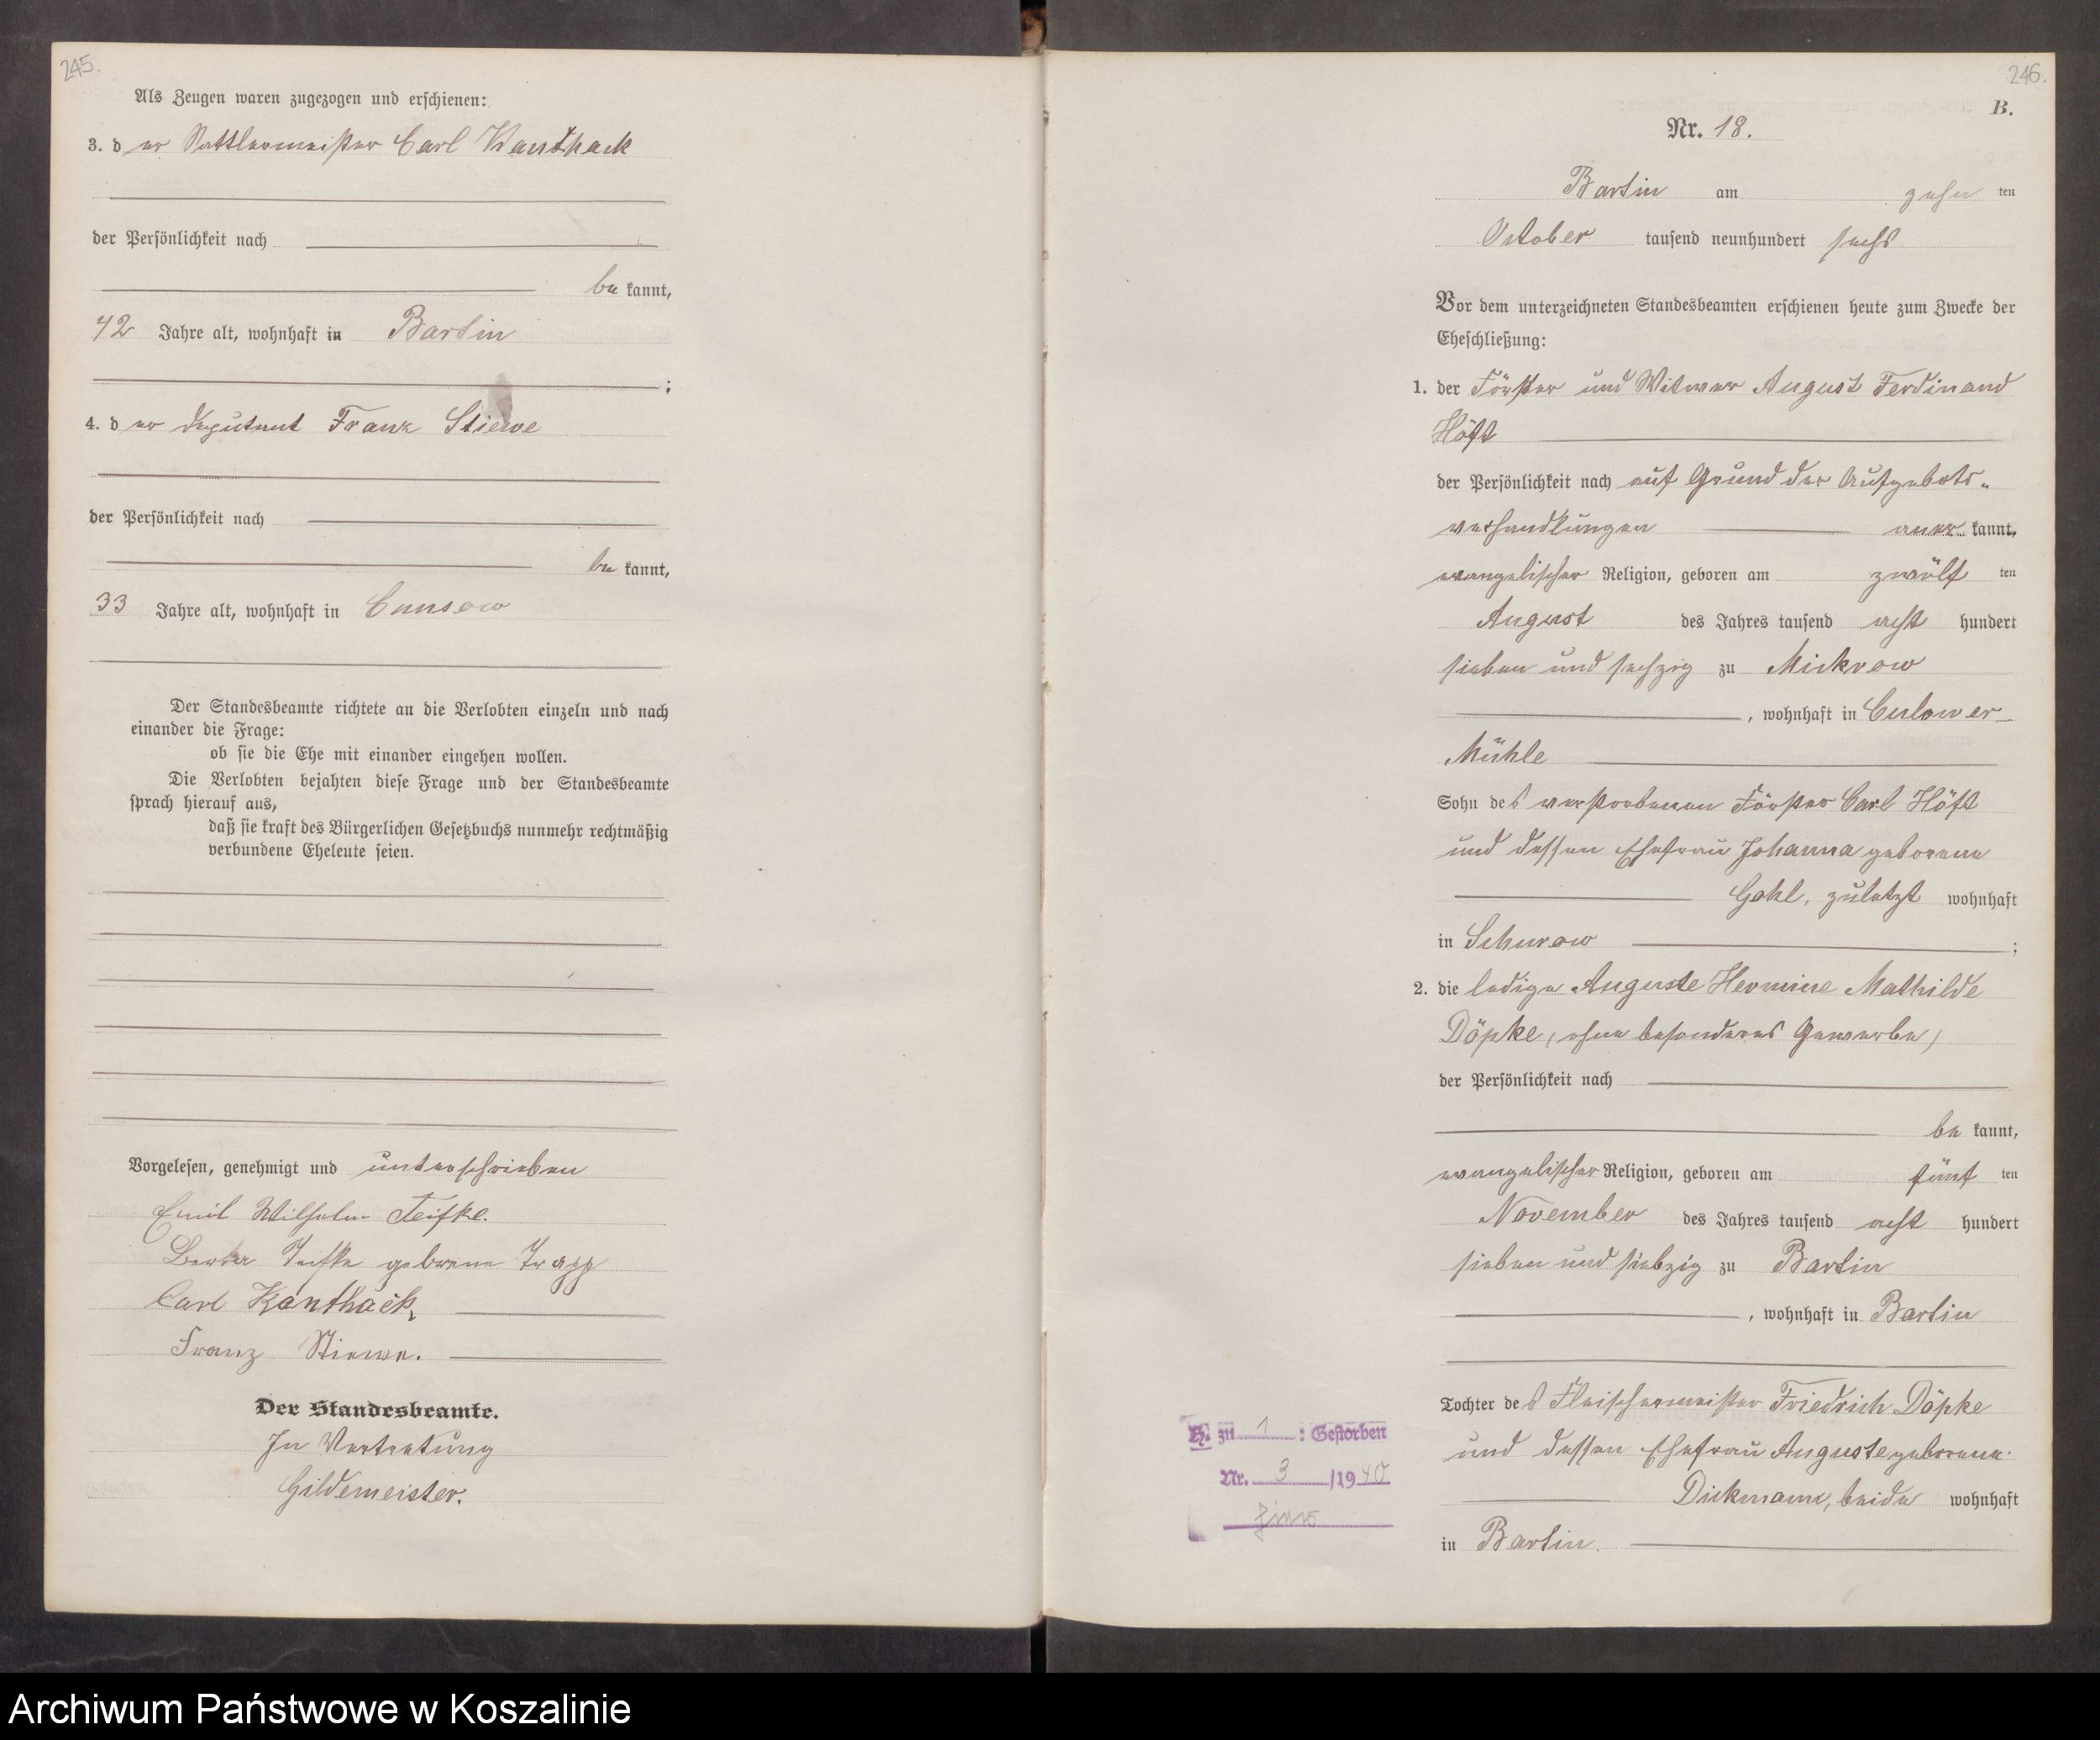 245.
Als Zeugen waren zugezogen und erschienen:
3. der Sattlermeister Carl Kanthack
der Persönlichkeit nach
be kannt,
42 Jahre alt, wohnhaft in Bartin
;
4. der Deputant Franz Stiewe
der Persönlichkeit nach
be kannt,
33 Jahre alt, wohnhaft in Cunsow
Der Standesbeamte richtete an die Verlobten einzeln und nach
einander die Frage:
ob sie die Ehe mit einander eingehen wollen.
Die Verlobten bejahten diese Frage und der Standesbeamte
sprach hierauf aus,
daß sie kraft des Bürgerlichen Gesetzbuchs nunmehr rechtmäßig
verbundene Eheleute seien.
Vorgelesen, genehmigt und unterschrieben
Emil Wilhelm Teifke.
Berta Teifke geborene Trapp
Carl Kanthack
Franz Stiewe.
Der Standesbeamte.
In Vertretung
Gildemeister.
246.
B.
Nr. 18.
Bartin am zehn ten
October tausend neunhundert sechs
Vor dem unterzeichneten Standesbeamten erschienen heute zum Zwecke der
Eheschließung:
1. der Förster und Witwer August Ferdinand
Höft
der Persönlichkeit nach auf Grund der Aufgebots-
verhandlungen aner kannt,
evangelischer Religion, geboren am zwölf ten
August des Jahres tausend acht hundert
sieben und sechzig zu Mickrow
, wohnhaft in Culower-
Mühle
Sohn des verstorbenen Förster Carl Höft
und dessen Ehefrau Johanna geborene
Gohl, zuletzt wohnhaft
in Schurow ;
2. die ledige Auguste Hermine Mathilde
Döpke (ohne besonderes Gewerbe)
der Persönlichkeit nach
be kannt,
evangelischer Religion, geboren am fünf ten
November des Jahres tausend acht hundert
sieben und siebzig zu Bartin
, wohnhaft in Bartin
Tochter des Fleischermeister Friedrich Döpke
und dessen Ehefrau Auguste geborene
Dickmann, beide wohnhaft
in Bartin.
H. zu 1 : Gestorben
Nr. 3 /1940
Archiwum Państwowe w Koszalinie